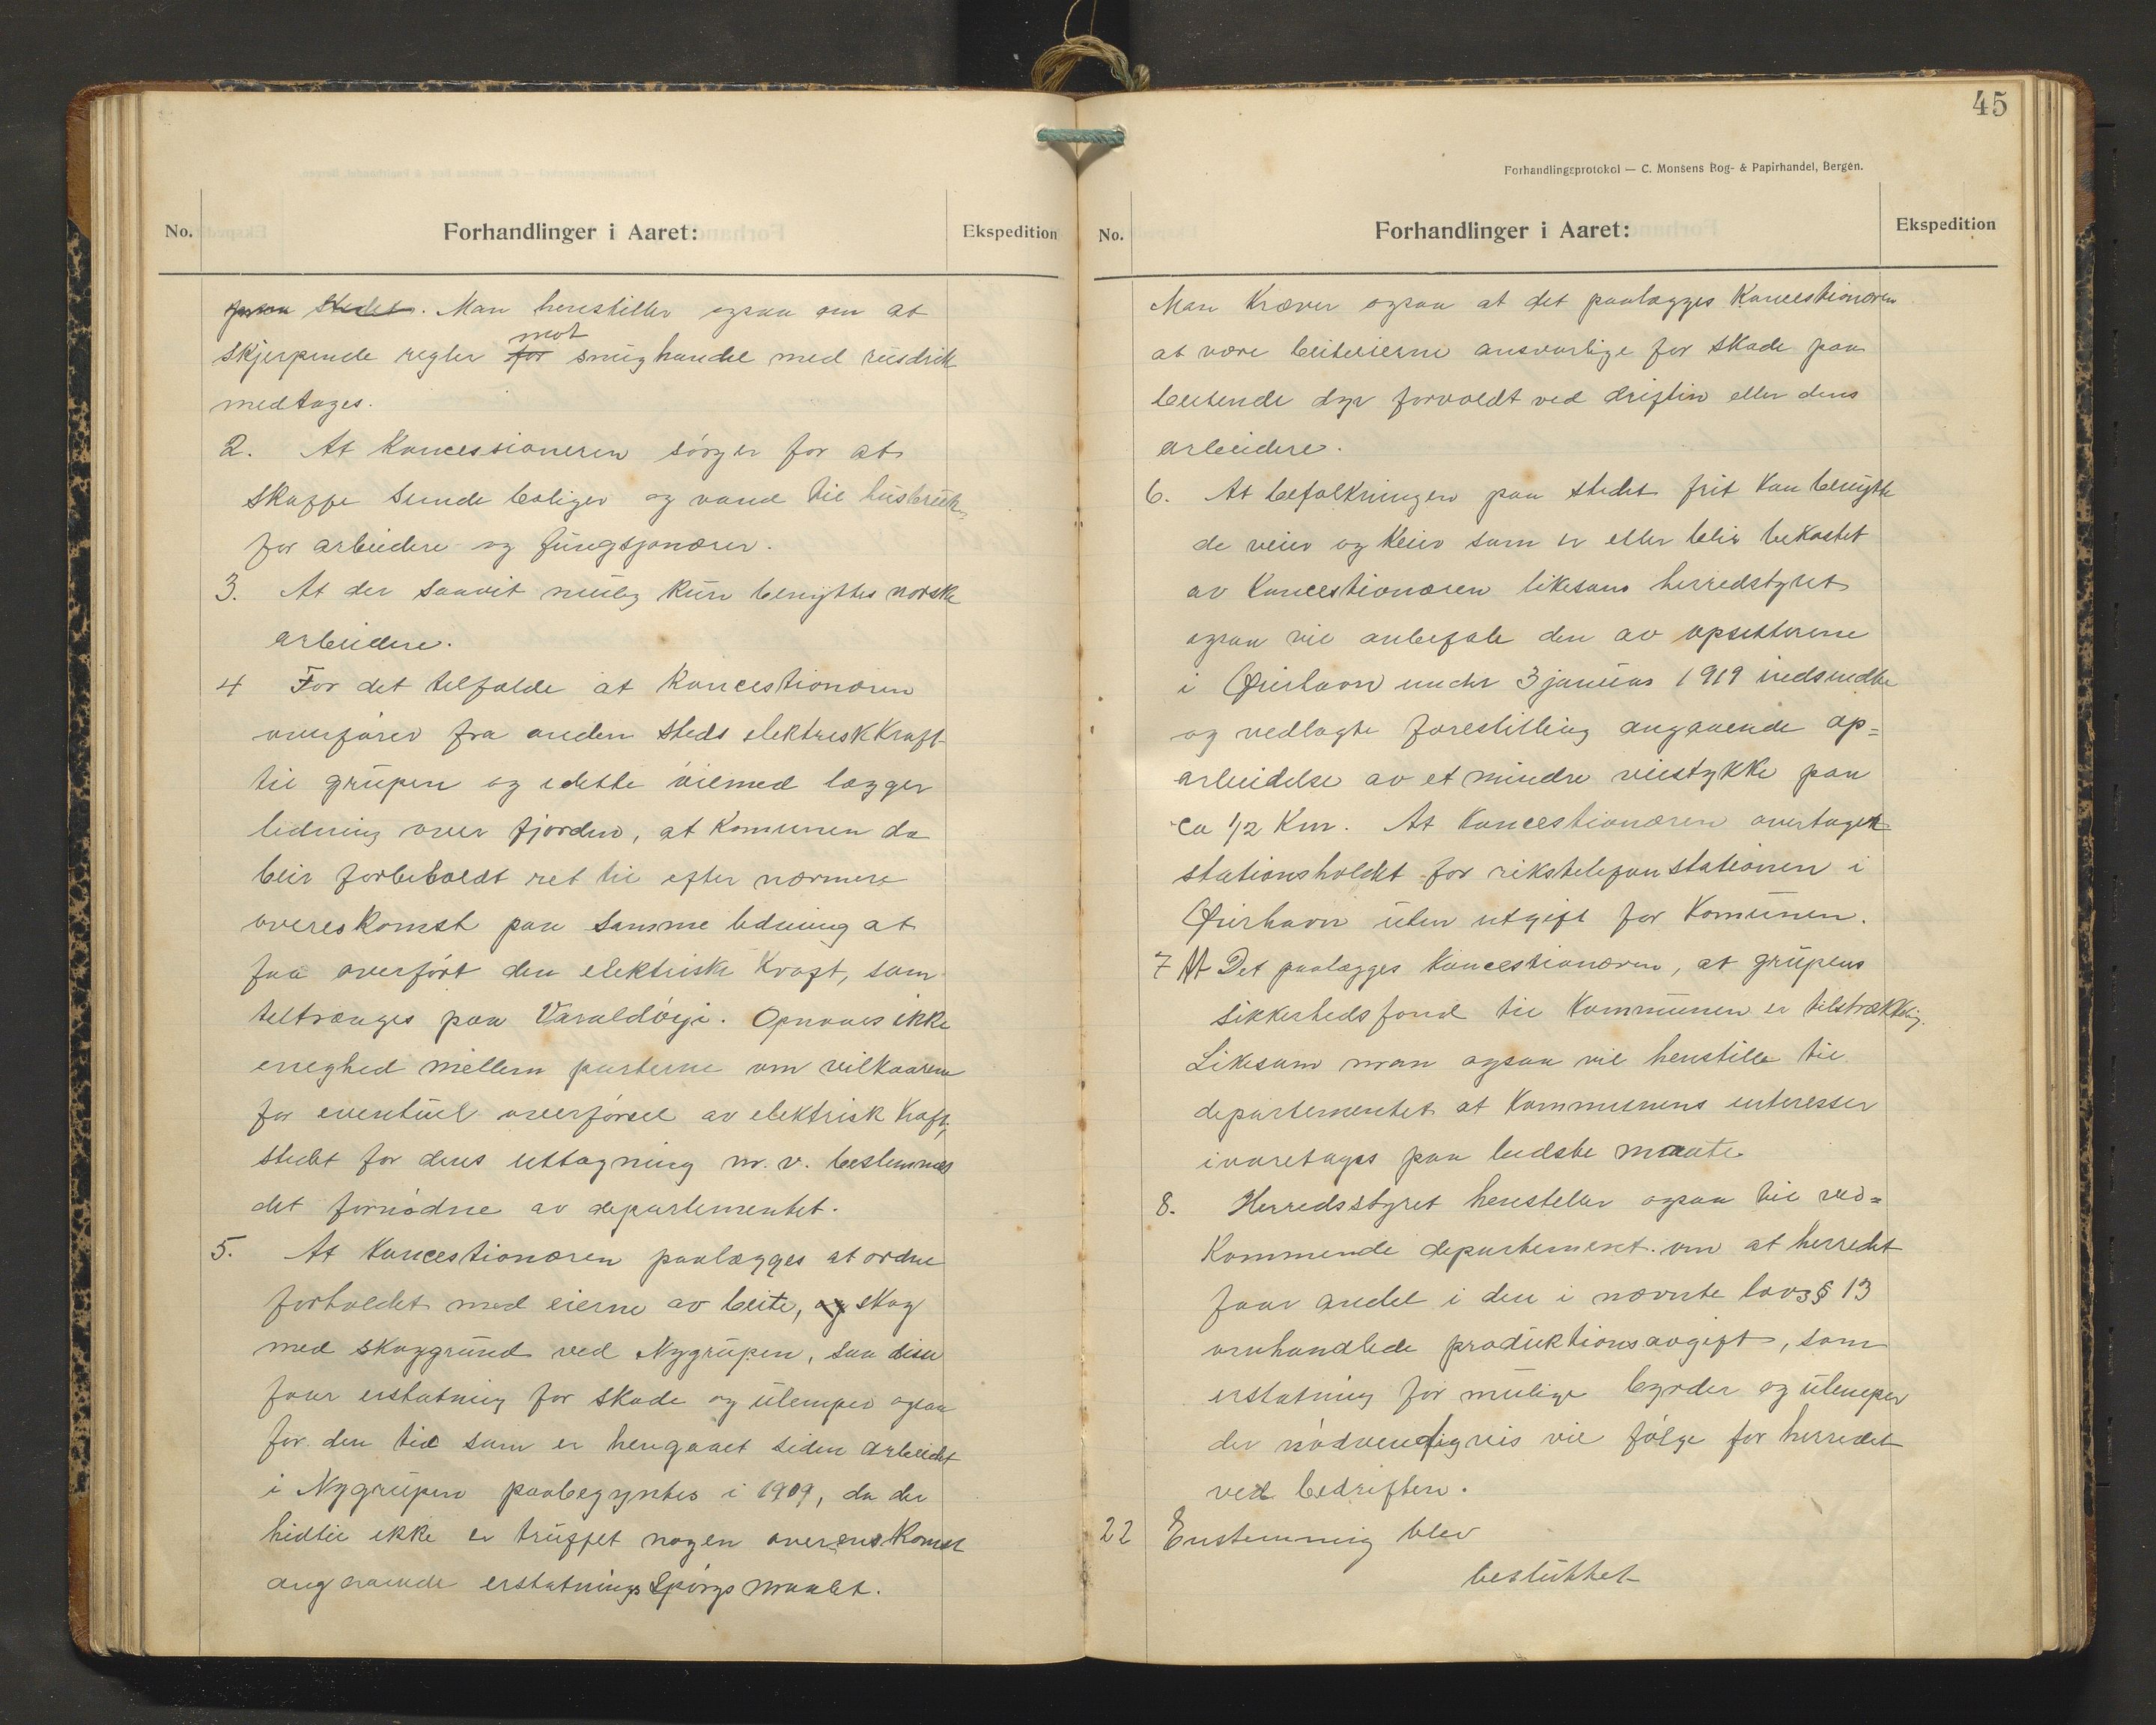 No.
Forhandlinger i Aaret:
Ekspedition
paa stedet. Man henstiller ogsaa om at
mot
skjerpende regler for smughandel med rusdrik
medtages.
2. At Koncessioneren sörger for at
skaffe sunde boliger og vand til husbruk
for arbeidere og fungsjonærer.
3. At der saavit mulig kun benyttes norske
arbeidere.
4 For det telfælde at Koncestionæren
overfører fra anden steds elektrisk Kraft
til grupen og i dette öiemed lægger
ledning over fjorden, at Komunen da
blir forbeholdt ret til efter nærmere
overeskomst paa samme ledning at
faa overfört den elektriske Kraft, som
teltrænges paa Varaldöiji. Opnaaes ikke
eneghed mellem parterne om vilkaarene
for eventuel overförsel av elektrisk Kraft,
stedet for dens uttagning m. v. bestemmes
det fornödne av departementet.
5. At Koncestionæren paalægges at ordne
forholdet med eierne av beite, og skog
med skoggrund ved Nygrupen, saa disse
faar erstatning for skade og ulemper ogsaa
for den tid som er hengaaet siden arbeidet
i Nygrupen paabegyntes i 1909, da der
hidtil ikke er truffet nogen overenskomst
angaaende erstatnings Spörgsmaalet.
45
Forhandlingsprotokol — C. Monsens Bog- & Papirhandel, Bergen.
No.
Forhandlinger i Aaret:
Ekspedition
Man Kræver ogsaa at det paalægges Koncestionæren
at være beiteierne ansvarlige for skade paa
beitende dyr forvoldt ved driften eller dens
arbeidere.
6. At befolkningen paa stedet frit kan benytte
de veier og Keier som er eller blir bekostet
av Koncestionæren likesom herredstyret
ogsaa vil anbefale den av opsitterne
i Øierhavn under 3 januar 1919 indsendte
og vedlagte forestilling angaaende op=
arbeidelse av et mindre veistykke paa
ca 1/2 Km. At Koncestionæren overtager
stationsholdet for rikstelefonstationen i
Øierhavn uten utgift for Komunen.
7 At Det paalægges Koncestionæren, at grupens
sikkerhedsfond til Kommunen er tilstrækkelig.
Likesom man ogsaa vil henstille til
departementet at Kommunens interesser
ivaretages paa bedste maate.
8. Herredsstyret henstiller ogsaa til ved=
Kommende departement om at herredet
faar andel i den i nævnte lovs § 13
omhandlede produktionsavgift, som
erstatning for mulige byrder og ulemper
der nödvendigvis vil følge for herredet
ved bedriften.
22 Enstemmig blev
besluttet